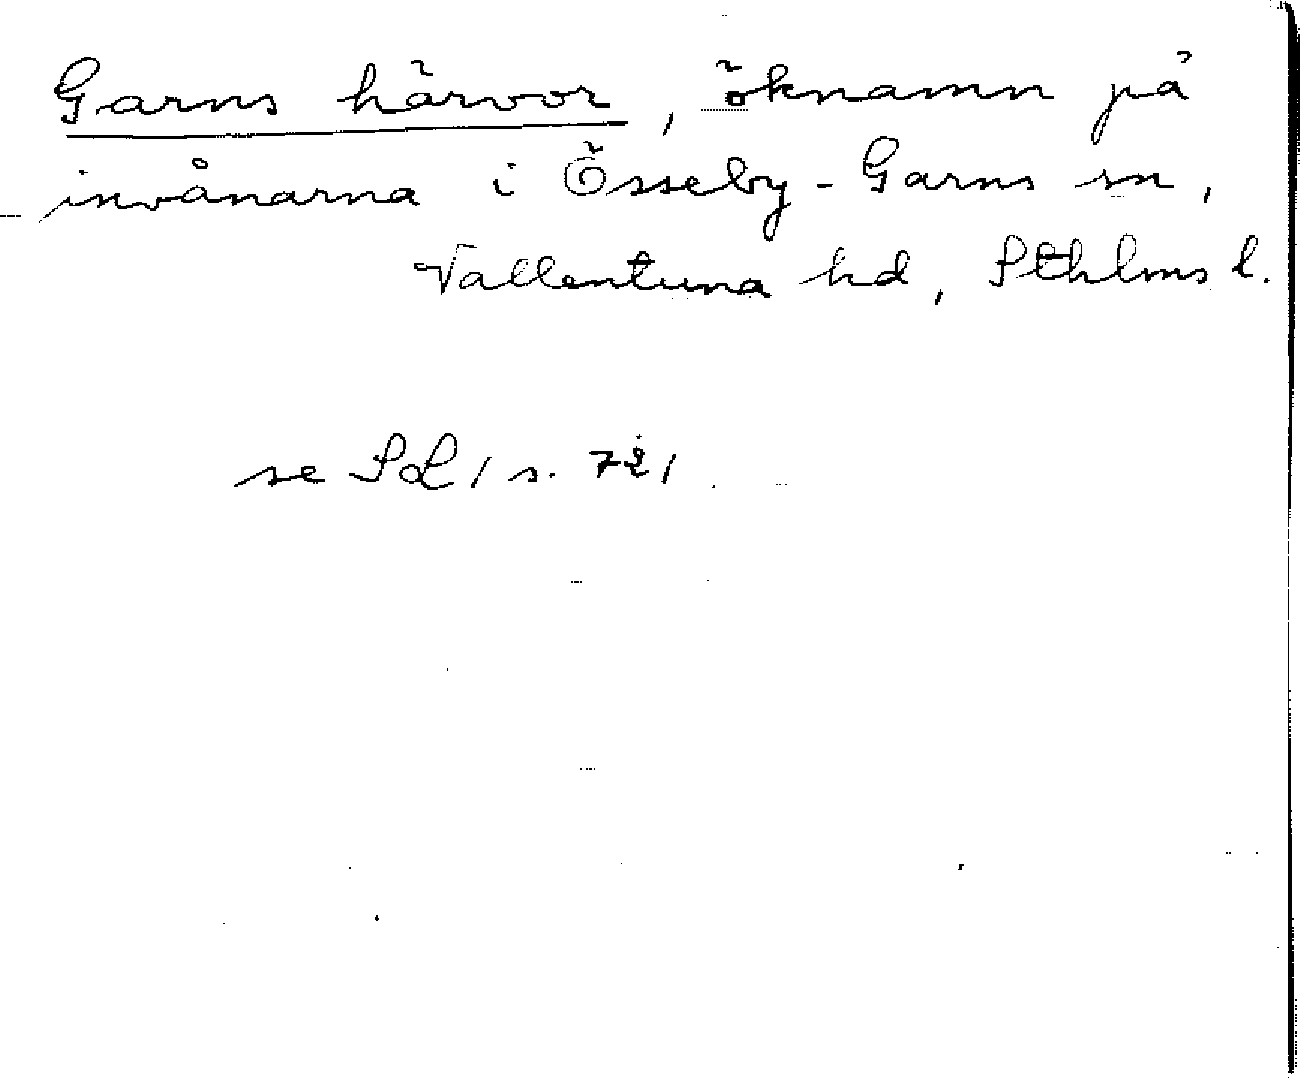 Garns härvor, öknamn på
invånarna i Össeby-Garns sn,
Vallentuna hd, Sthlms l.
se SOL 1 s. 721